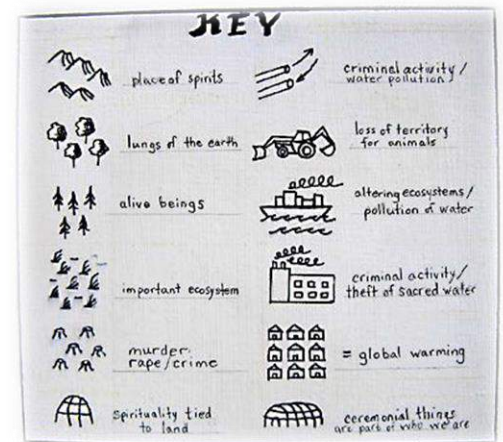 KEY
place of spirits
lungs of the earth
alive beings
important ecosystem
murder
rape/crime
spirituality tied
to land
criminal activity/
water pollution
loss of territory
for animals
altering ecosystems/
pollution of water
criminal activity/
theft of sacred water
= global warming
ceremonial things
are part of who we are